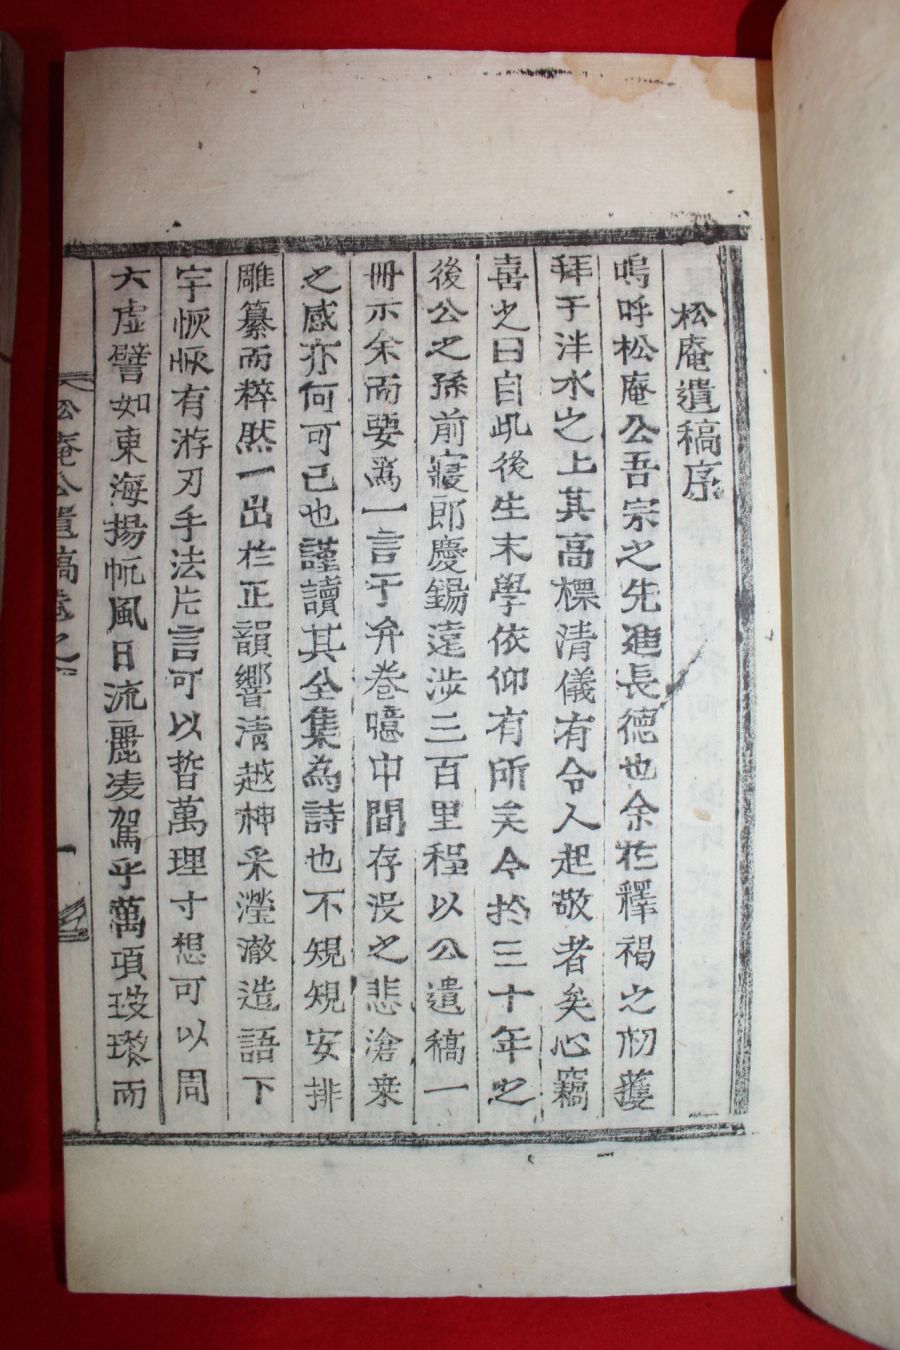 松庵遺稿序
嗚呼松庵公吾宗之先進長德也余在釋褐之初獲
拜于泮水之上其高標清儀有令人起敬者矣心竊
喜之曰自此後生末學依仰有所矣今於三十年之
後公之孫前寢郎慶錫遠涉三百里程以公遺稿一
冊示余而要爲一言于弁卷噫中間存沒之悲滄桑
之感亦何可已也謹讀其全集為詩也不規規安排
雕纂而粹然一出於正韻響淸越神采瀅澈造語下
字恢恢有游刃手法片言可以晢萬理寸想可以周
六虛譬如東海揚帆風日流麗凌駕乎萬項玻瓈而
松庵公遺稿卷之
一